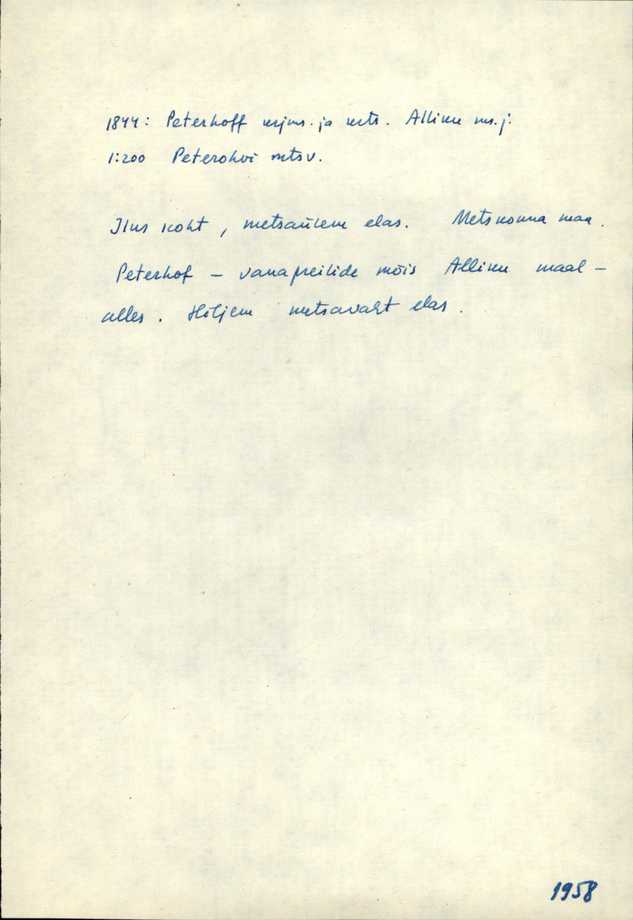 1844: Peterhoff krjms. ja mts. Alliku ms. j.
1:200 Peterohvi mtsv.
Ilus koht, metsaülem elas. Metskonna maa.
Peterhof – vanapreilide mõis Alliku maal –
alles. Hiljem metsavaht elas.
1958